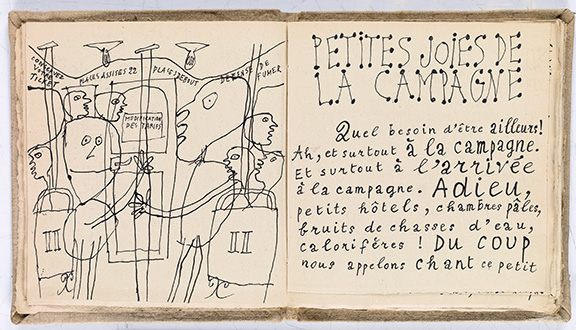 CONSERVEZ
VOTRE
TICKET
PLACES ASSISES 22
PLACES DEBOUT
DEFENSE DE
FUMER
MODIFICATION
DES TARIFS
II
II
PETITES JOIES DE
LA CAMPAGNE
Quel besoin d'être ailleurs!
Ah, et surtout à la campagne.
Et surtout à l'arrivée
à la campagne. Adieu,
petits hôtels, chambres pâles,
bruits de chasses d'eau,
calorifères! DU COUP
nous appelons chant ce petit